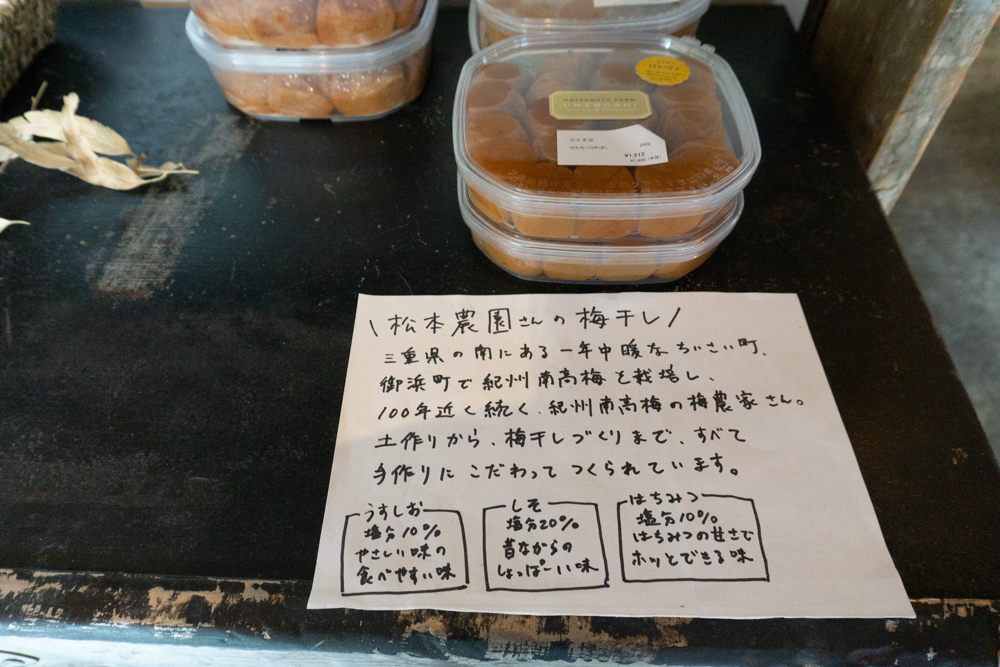 HONEY
MATSUMOTO FARM
UMEBOSHI
はちみつうめぼし
¥1,512
\ 松本農園さんの梅干し /
三重県の南にある一年中暖かなちいさい町、
御浜町で紀州南高梅を栽培し、
100年近く続く、紀州南高梅の梅農家さん。
土作りから、梅干しづくりまで、すべて
手作りにこだわってつくられています。
うすしお
塩分10%
やさしい味の
食べやすい味
しそ
塩分20%
昔ながらの
しょっぱ〜い味
はちみつ
塩分10%
はちみつの甘さで
ホッとできる味